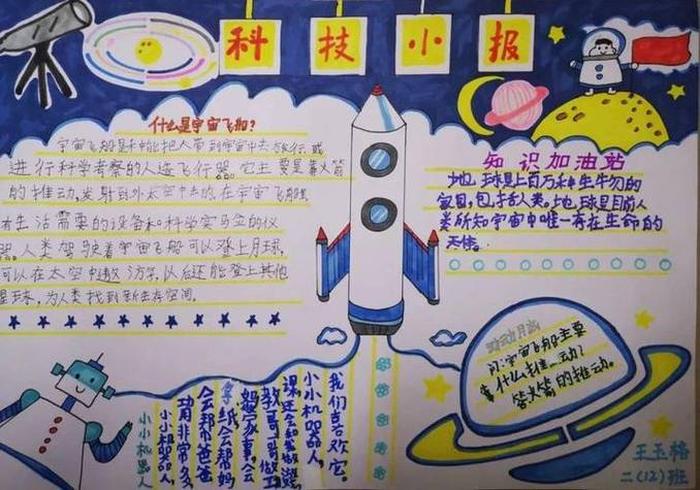 科技小报
什么是宇宙飞船?
宇宙飞船是种能把人带到宇宙中去旅行,或
进行科学考察的人造飞行器。它主要是靠火箭
的推动,发射到外太空中去的。在宇宙飞船里
有生活需要的设备和科学实验室的仪
器。人类驾驶着宇宙飞船可以登上月球,
可以在太空中遨访学,以后还能登上其他
星球,为人类找到新生存空间。
知识加油站
地球是上百万种生物的
家园,包括人类。地球是目前人
类所知宇宙中唯一存在生命的
天体。
问:宇宙飞船主要
靠什么推动?
答火箭的推动。
小小机器人
小小机器人,
功用非常多,
会帮爸爸
拿纸,会帮妈
妈做家事,会
教哥哥做工
课,还会和我做游
小小机器人,
我们喜欢它。
王玉格
二(12)班